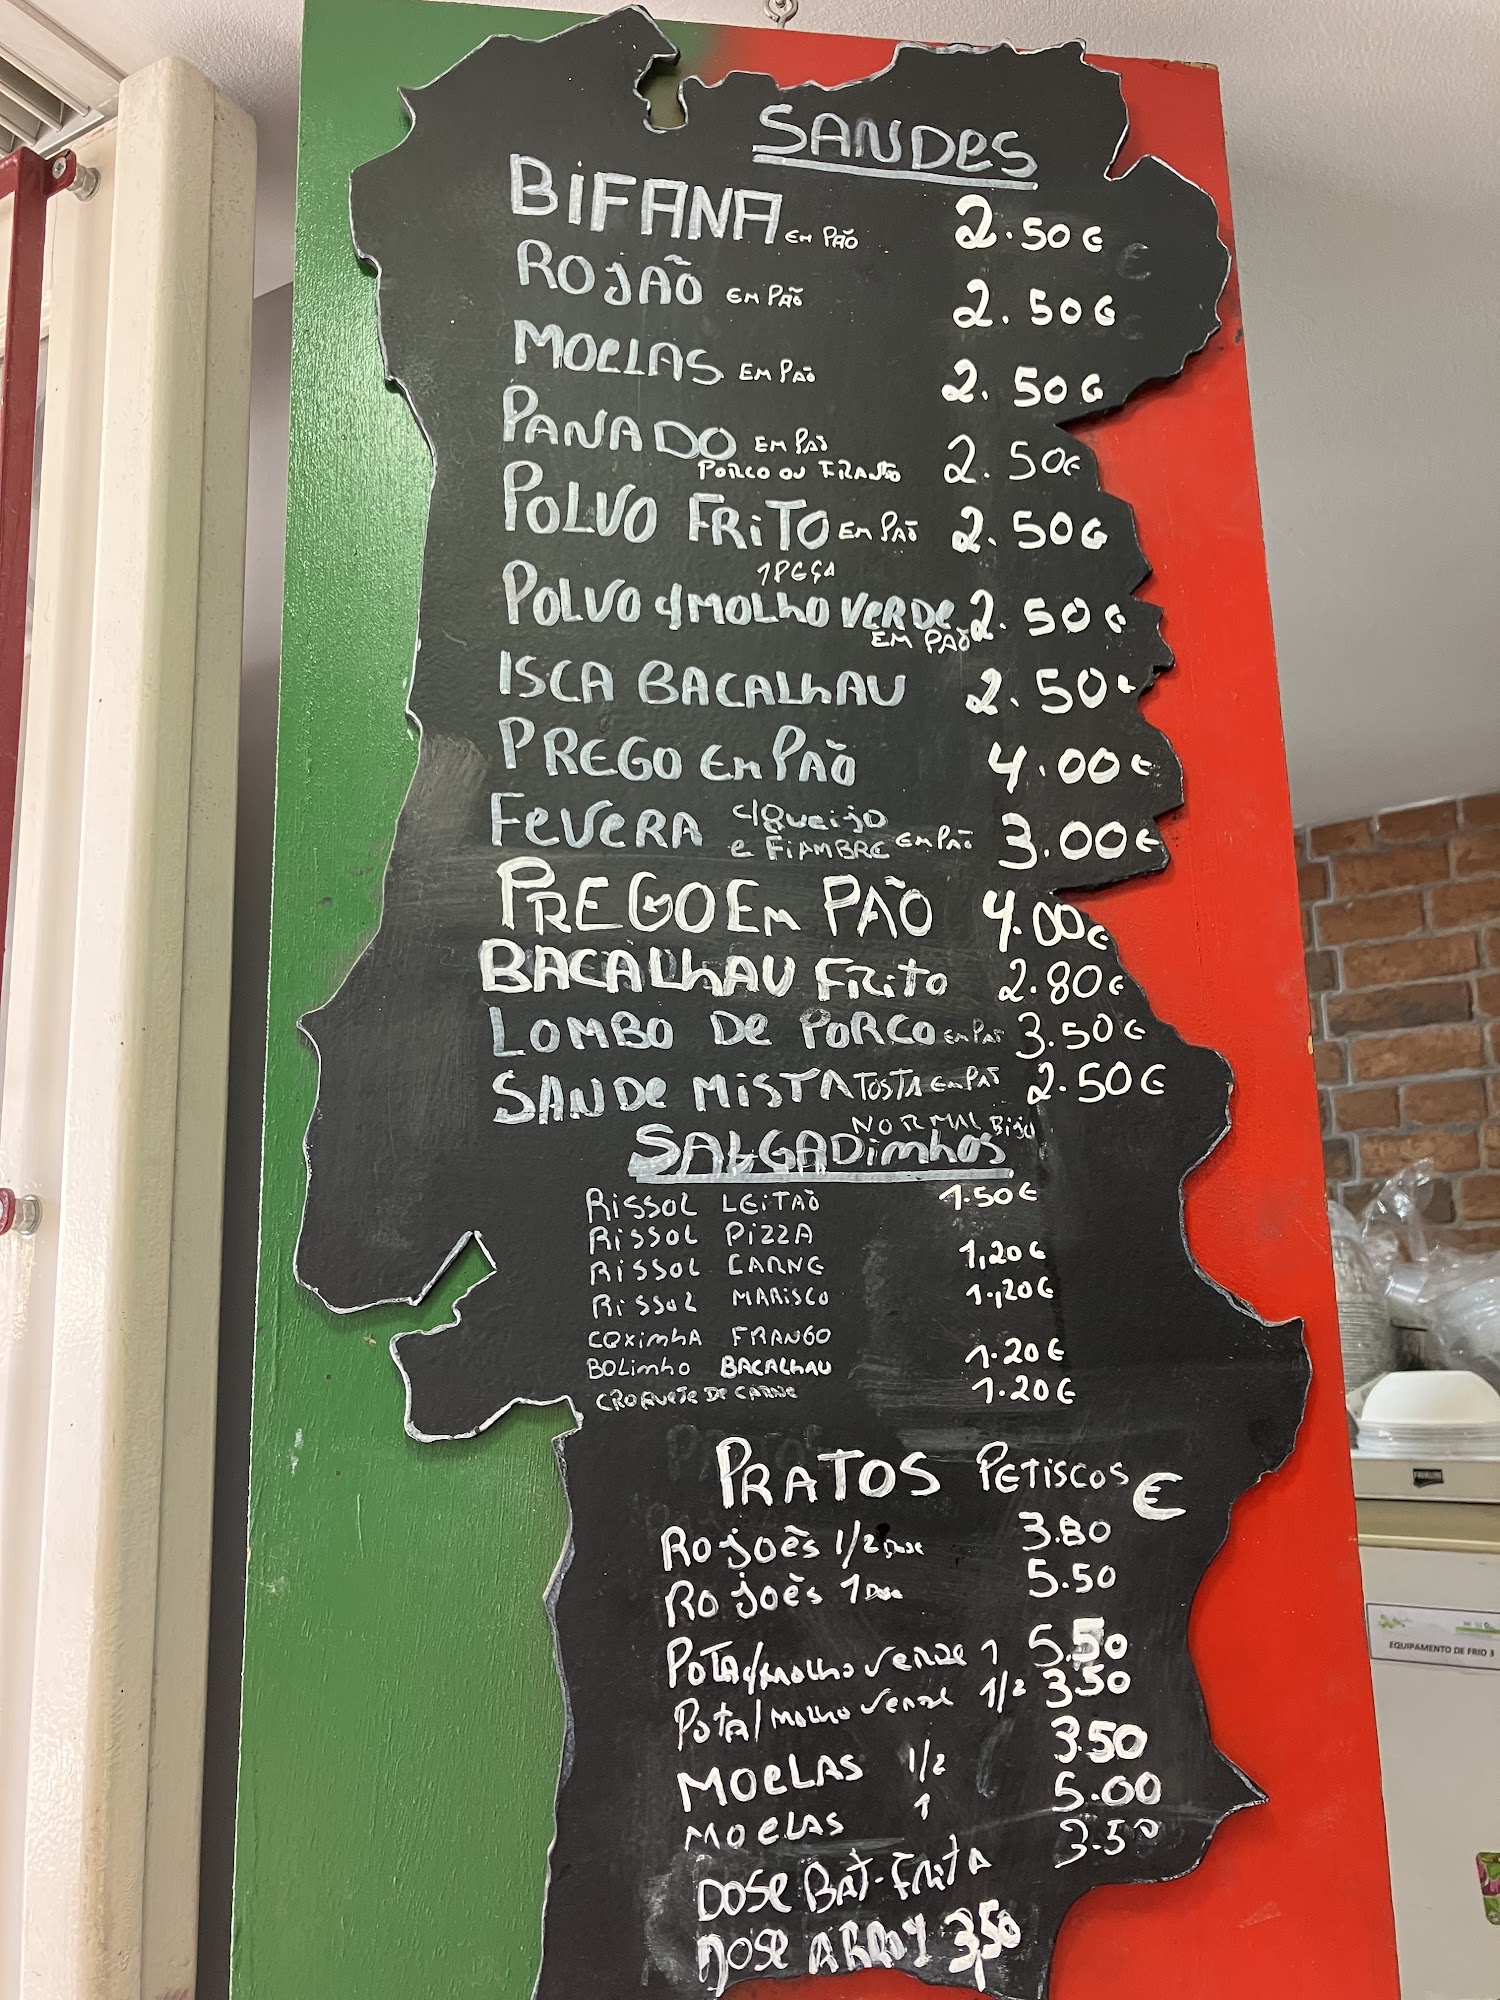 SANDES
BIFANA EM PÃO 2.50€
ROJÃO EM PÃO 2.50€
MOELAS EM PÃO 2.50€
PANADO EM PÃO 2.50€
PORCO OU FRANGO
POLVO FRITO EM PÃO 2.50€
1 PEÇA
POLVO C/MOLHO VERDE 2.50€
EM PÃO
ISCA BACALHAU 2.50€
PREGO EM PÃO 4.00€
FEVERA C/QUEIJO E FIAMBRE EM PÃO 3.00€
PREGO EM PÃO 4.00€
BACALHAU FRITO 2.80€
LOMBO DE PORCO EM PÃO 3.50€
SANDE MISTA TOSTA EM PÃO 2.50€
NORMAL BIJO
SALGADINHOS
RISSOL LEITÃO 1.50€
RISSOL PIZZA
RISSOL CARNE 1,20€
RISSOL MARISCO 1,20€
COXINHA FRANGO
BOLINHO BACALHAU 1.20€
CROQUETE DE CARNE 1.20€
PRATOS PETISCOS €
ROJOÊS 1/2 DOSE 3.80
ROJOÊS 1 DOSE 5.50
POTA C/MOLHO VERDE 1 5.50
POTA/MOLHO VERDE 1/2 3.50
MOELAS 1/2 3.50
MOELAS 1 5.00
DOSE BAT-FRITA 3.50
DOSE ARROZ 3,50
EQUIPAMENTO DE FRIO 3